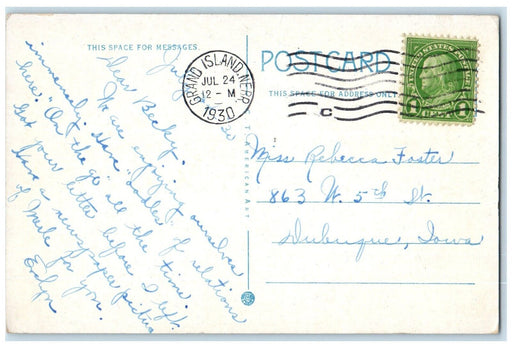 THIS SPACE FOR MESSAGES.
POSTCARD
THIS SPACE FOR ADDRESS ONLY
GRAND ISLAND, NEBR.
JUL 24
12 - M
1930
C
UNITED STATES POSTAGE
1 CENT 1
July
30
Dear Becky:
We are enjoying ourselves
immensely. Have oodles of relations
here. "On the go" all the time.
Got your letter before I left.
Have a newspaper picture
of Merle for you.
Evelyn
Miss Rebecca Foster
863 W. 5th St.
Dubuque, Iowa